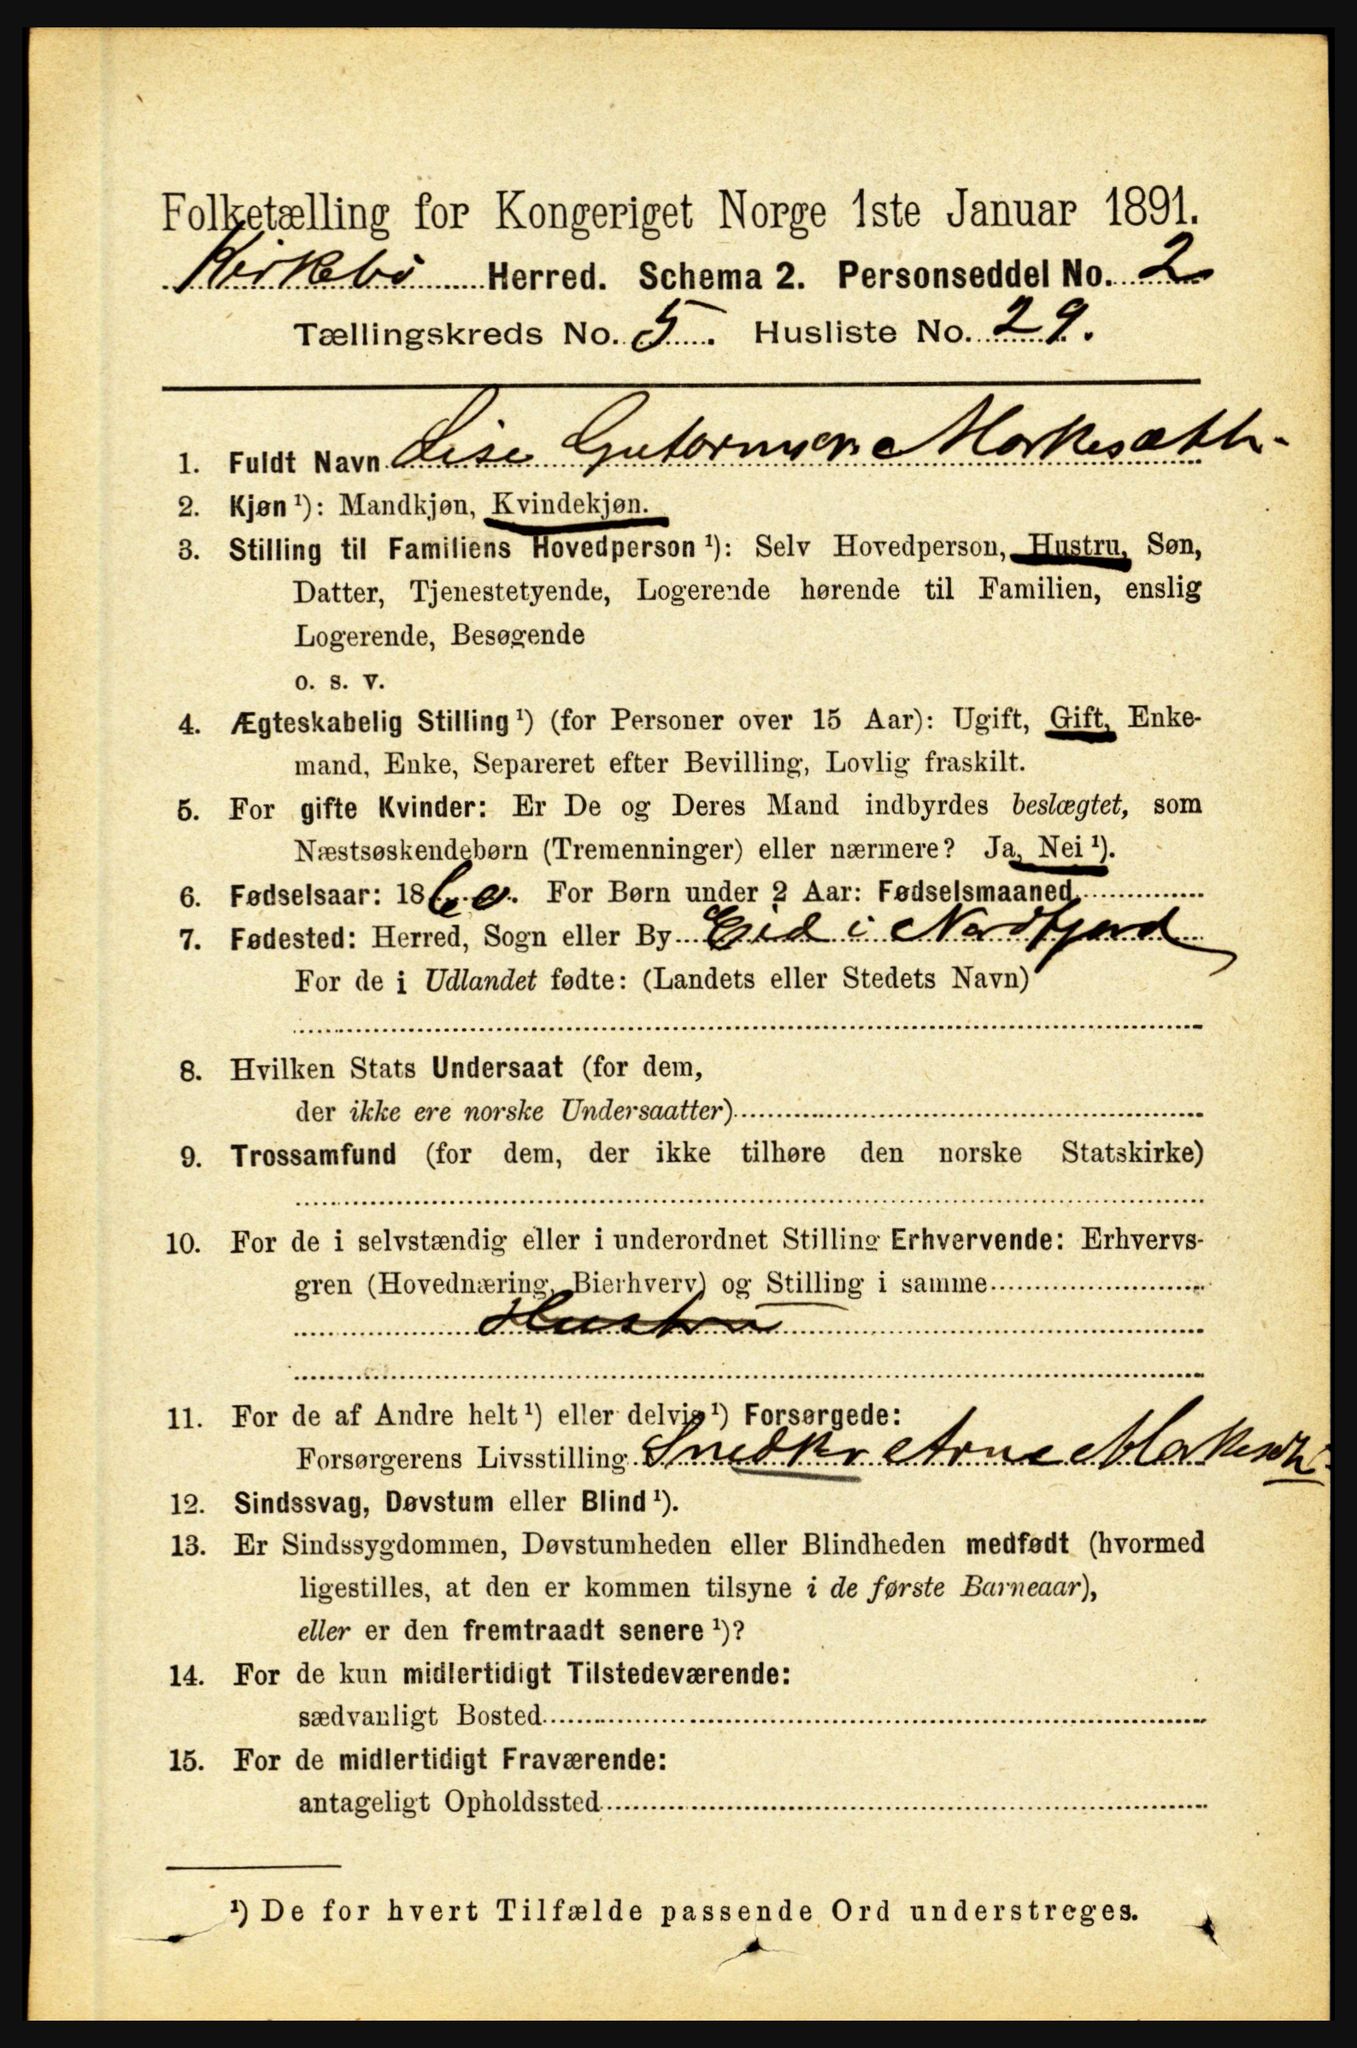 Folketælling for Kongeriget Norge 1ste Januar 1891.
Kirkebø Herred. Schema 2. Personseddel No. 2
Tællingskreds No. 5. Husliste No. 29.
1. Fuldt Navn Lise Gutormsen Morkesæth
2. Kjøn ¹): Mandkjøn, Kvindekjøn.
3. Stilling til Familiens Hovedperson ¹): Selv Hovedperson, Hustru, Søn,
Datter, Tjenestetyende, Logerende hørende til Familien, enslig
Logerende, Besøgende
o. s. v.
4. Ægteskabelig Stilling ¹) (for Personer over 15 Aar): Ugift, Gift, Enke-
mand, Enke, Separeret efter Bevilling, Lovlig fraskilt.
5. For gifte Kvinder: Er De og Deres Mand indbyrdes beslægtet, som
Næstsøskendebørn (Tremenninger) eller nærmere? Ja, Nei ¹).
6. Fødselsaar: 1860. For Børn under 2 Aar: Fødselsmaaned
7. Fødested: Herred, Sogn eller By Eid i Nordfjord
For de i Udlandet fødte: (Landets eller Stedets Navn)
8. Hvilken Stats Undersaat (for dem,
der ikke ere norske Undersaatter)
9. Trossamfund (for dem, der ikke tilhøre den norske Statskirke)
10. For de i selvstændig eller i underordnet Stilling Erhvervende: Erhvervs-
gren (Hovednæring, Bierhverv) og Stilling i samme
Hustru
11. For de af Andre helt ¹) eller delvis ¹) Forsørgede:
Forsørgerens Livsstilling Snedker Arne Morkesæth
12. Sindssvag, Døvstum eller Blind ¹).
13. Er Sindssygdommen, Døvstumheden eller Blindheden medfødt (hvormed
ligestilles, at den er kommen tilsyne i de første Barneaar),
eller er den fremtraadt senere ¹)?
14. For de kun midlertidigt Tilstedeværende:
sædvanligt Bosted
15. For de midlertidigt Fraværende:
antageligt Opholdssted
¹) De for hvert Tilfælde passende Ord understreges.